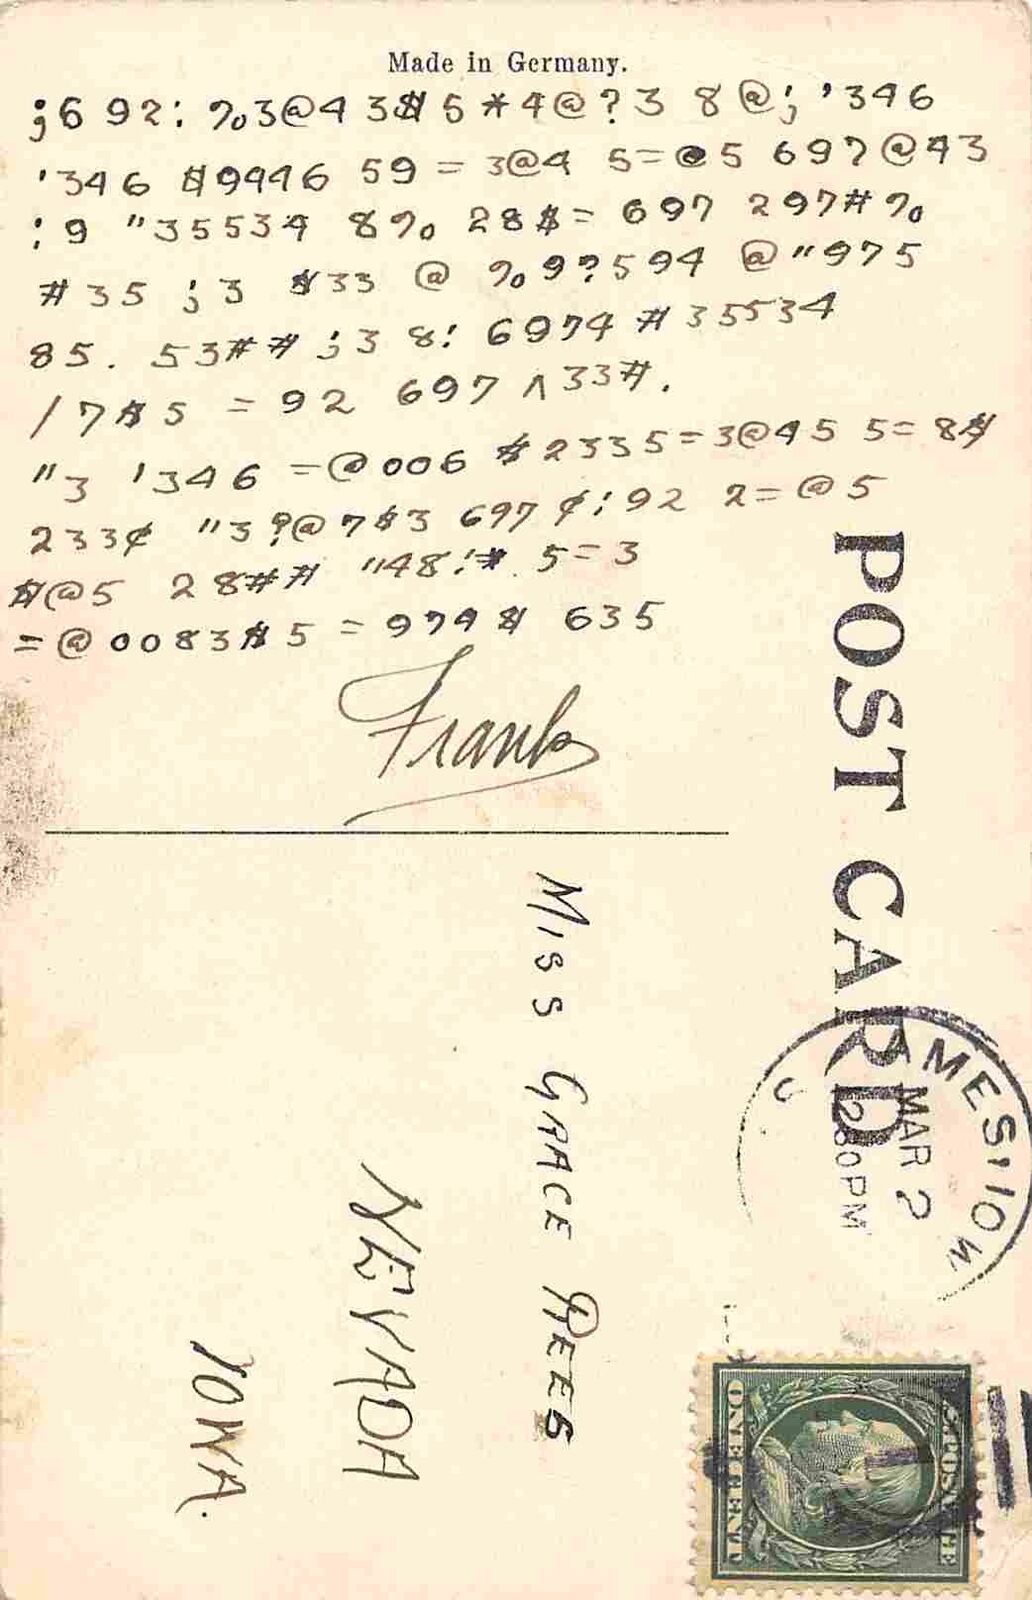 Made in Germany.
;6 92: %3@4 3$5*4@?3 8@; '346
'346 $9446 59 = 3@4 5=@5 697@43
:9 "35534 8% 28$= 697 297#%
#35 ;3 $33 @ %9?594 @"975
85. 53## ;3 8! 6974 #35534
/7$5 = 92 697 ^33#.
"3 '346 =@006 $2335=3@45 5=8$
233¢ "3?@7$3 697 ¢!92 2=@5
$@5 28## "48!* 5=3
=@0083$5 = 974$ 635
Frank
POST CARD
MISS GRACE REES
NEVADA
IOWA.
MAR 2
230PM
ONE CENT